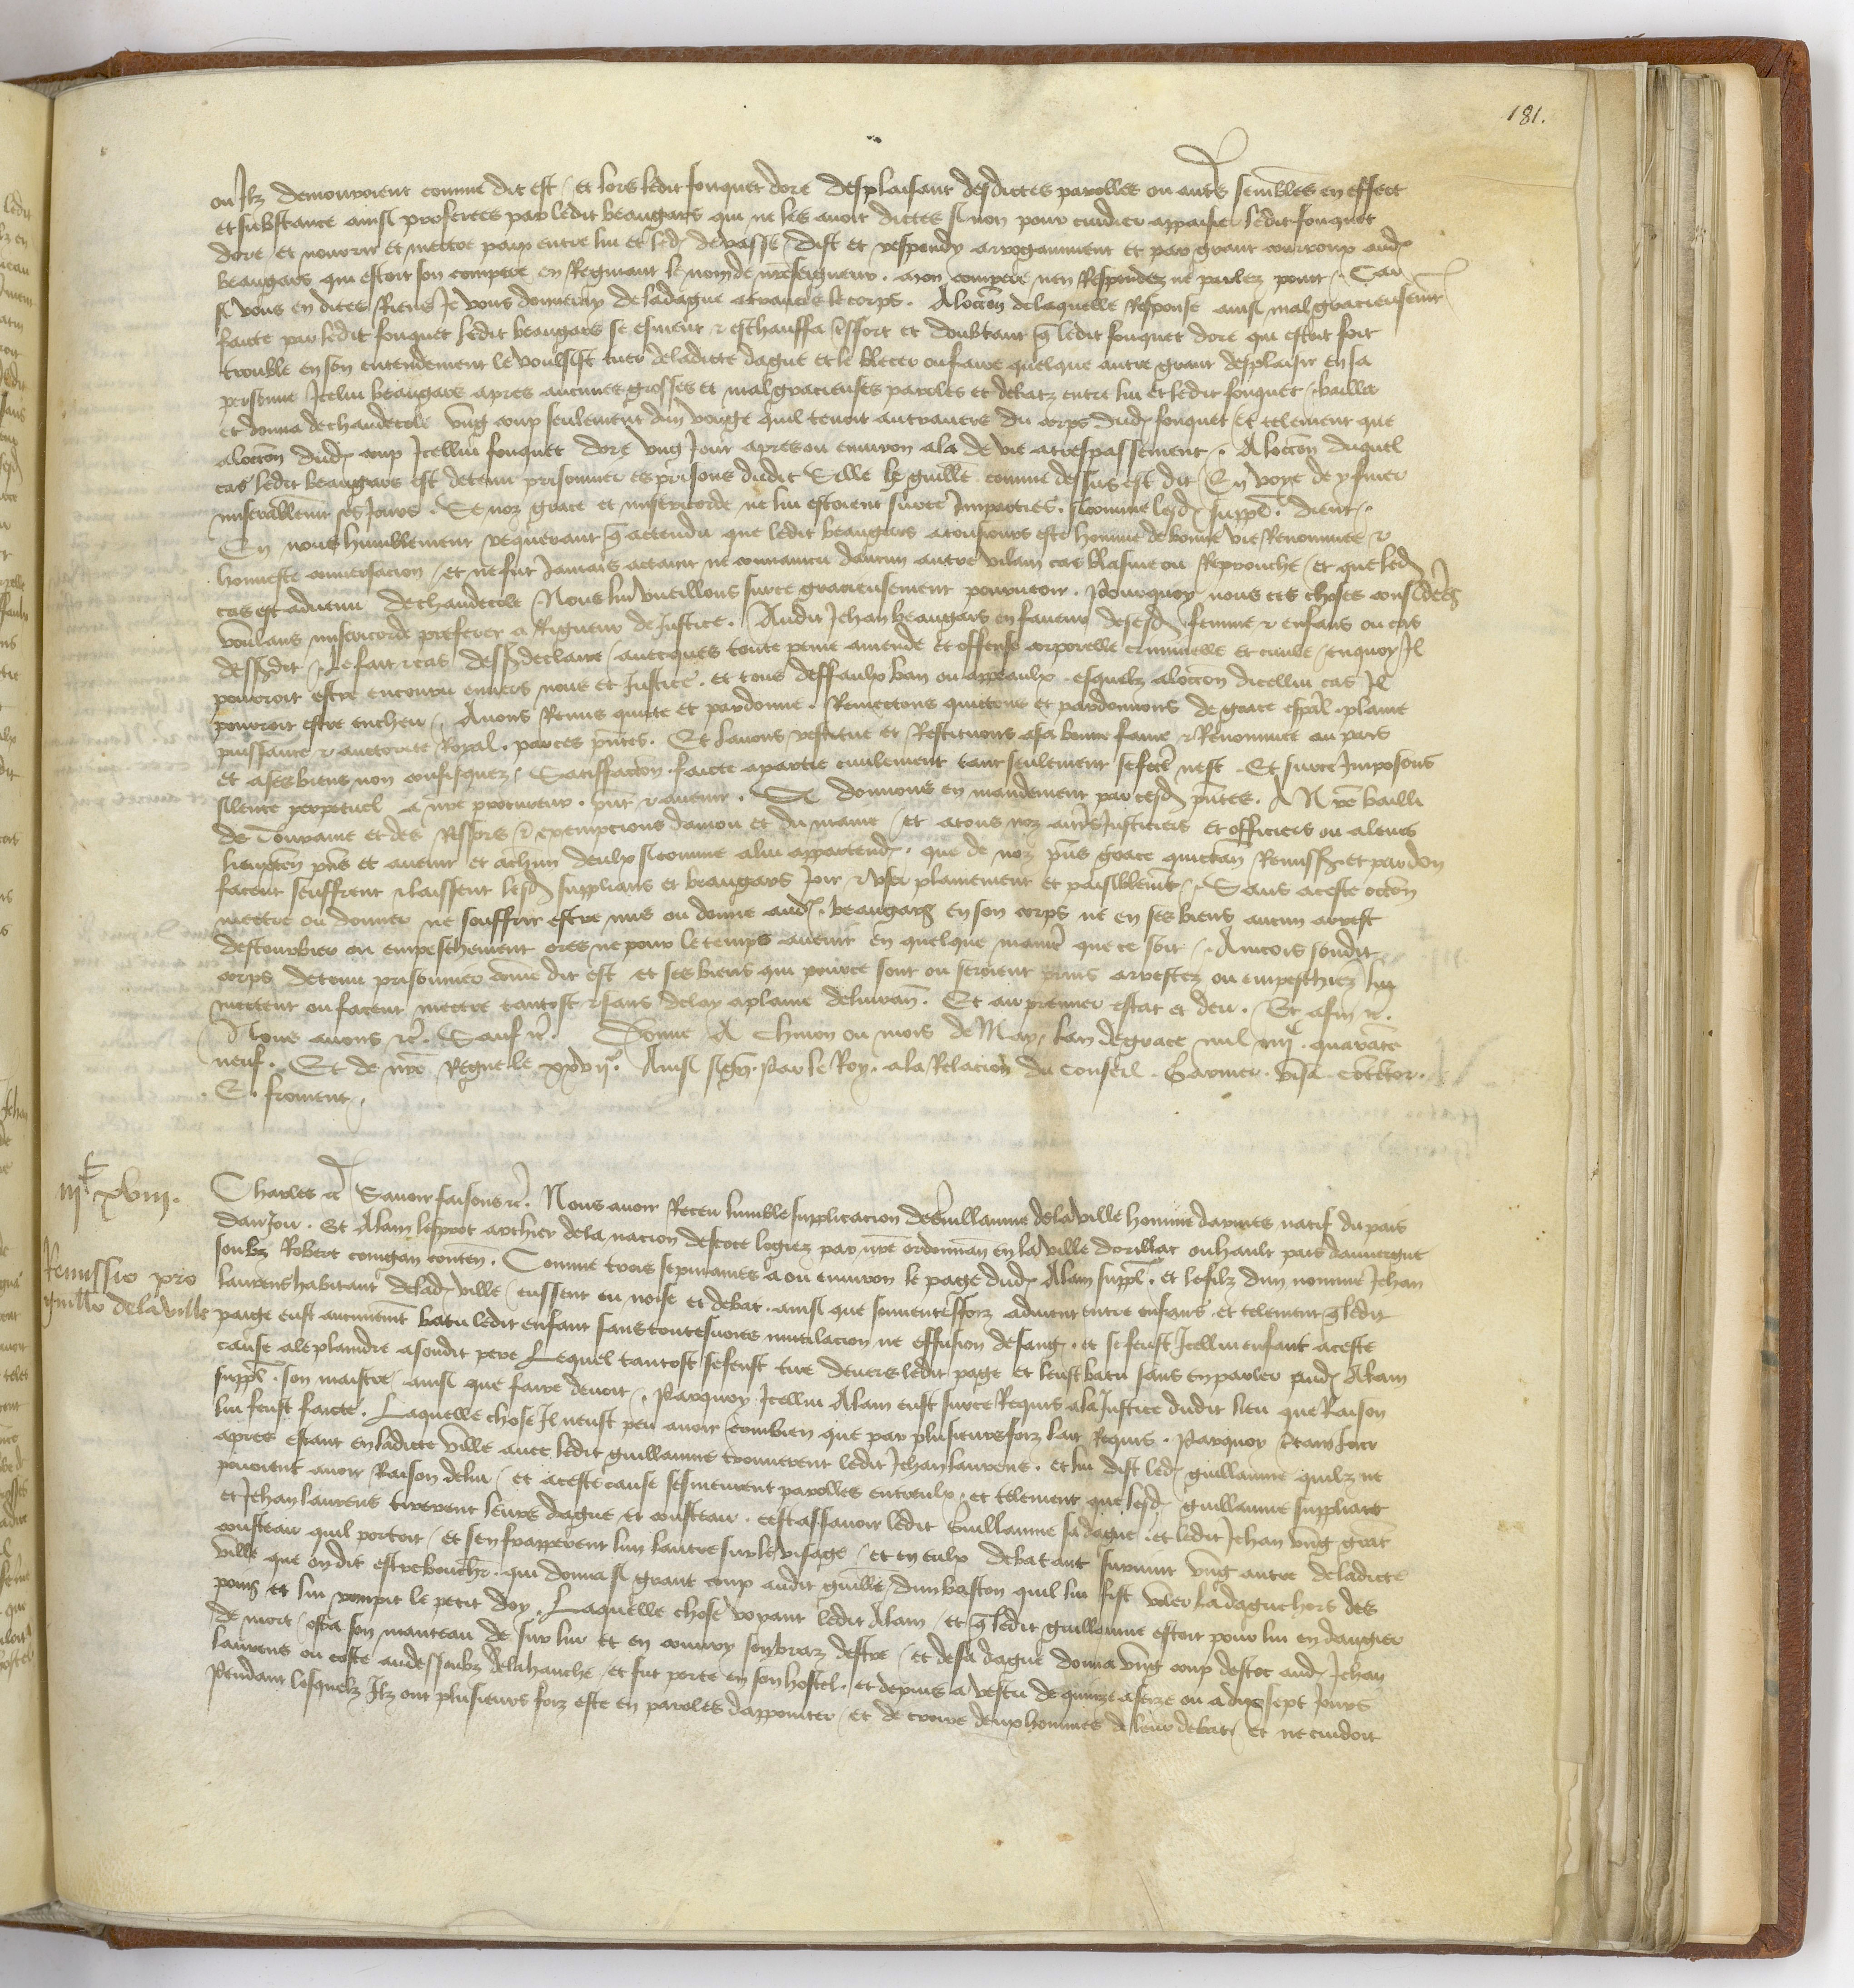 181.
ou Ilz demouroient comme dit est / Et lors ledit fouquet dore desplaisant desdictes parolles ou autres semblables en effect
et substance ainsi proferees par ledit beaugars qui ne les avoit dictes si non pour cuidier appaisier ledit fouquet
dore et nourrir et mectre paix entre lui et led de passe / dist et respondy arrogamment et par grant courroux aud
beaugars qui estoit son compere en Regniant le nom de nreseigneur . mon compere nen Respondez ne parlez point . Car
si vous en dites Riens Je vous donneray de ladague atravers le corps . A loccon de laquelle Response ainsi malgracieusemt
faicte par ledit fouquet ledit beaugars se esmeut & eschauffa si fort et doubtant q ledit fouquet dore qui estoit fort
trouble en son entendement le voulsist tuer de ladicte dague et le blecer ou faire quelque autre grant desplaisir en sa
personne Icelui beaugars apres aucunes grosses et malgracieuses paroles et debatz entre lui et ledit fouquet / bailla
et donna de chaudecole ung coup seulement dun vouge quil tenoit autravers du corps dud fouquet Et telement que
a loccon dud coup Icellui fouquet dore ung Jour apres ou environ ala de vie a trespassement . A loccon duquel
cas ledit beaugars est detenu prisonnier es prisons dudit Selle le guille comme dessus est dit En voye de y finer
miserablement ses Jours . Se noz grace et misericorde ne lui estoient surce Imparties . sicomme lesd suppl . dient .
En nous humblement requerant q attendu que ledit beaugars a tousiours este homme de bonne vie Renommee &
honneste conversacion / et ne fut Jamais actaint ne convaincu daucun autre vilain cas blasme ou Reprouche / et que led
cas est advenu de chaudecole Nous lui vueillons surce gracieusement pourveoir . Pourquoy nous ces choses considerees
voulans misericorde preferer a Rigueur de Justice . Audit Jehan beaugars en faveur de sesd femme & enfans ou cas
dessusdit / Le fait & cas dessus declaire / avecques toute peine amende et offense corporelle criminelle et civile / en quoy Il
pourroit estre encouru envers nous et Justice . et tous deffaulx ban ou appeaulx . esquelz a loccon dicellui cas Il
pourroit estre encheu . Avons Remis quicte et pardonne . Remectons quictons et pardonnons de grace espal . plaine
puissance & auctorite Royal . par ces pntes . Et lavons restitue et Restituons a sa bonne fame & Renommee au pais
et a ses biens non confisquez . Satisfaction faicte a partie civilement tant seulement se fcte nest . Et surce Imposons
silence perpetuel a nre procureur . pnt & avenir . Si donnons en mandement par cesd pntes . A Nre bailli
de Touraine et des Ressors & exempcions damou et du maine / et a tous noz autres Justiciers et officiers ou a leurs
lieuxten pns et avenir et a chun deulx sicomme a lui appartend . que de noz pns grace quictan Remission et pardon
facent seuffrent & laissent lesd supplians et beaugars Joir & user plainement et paisiblemt . Sans a ceste occon
mectre ou donner ne souffrir estre mis ou donne aud . beaugars en son corps ne en ses biens aucun arrest
destourbier ou empeschement ores ne pour le temps avenir en quelque manie que ce soit . Aincois sondit
corps detenu prisonnier come dit est et ses biens qui pource sont ou seroient prins arrestez ou empeschez lui
mectent ou facent mectre tantost & sans delay a plaine delivran . Et au premier estat et deu . Et afin &c .
Nous avons &c . Sauf &c . Donne A Chinon ou mois de May lan de grace mil iiiic . quarate
neuf . Et de nre Regne le xxvije . Ainsi signe . Par le Roy . a la Relacion du Conseil . Garnier . visa . contentor .
. E . froment .
iijc xviii .
Remissio pro
guillo delaville
Charles &c Savoir faisons &c . Nous avoir Receu lumble supplicacion de Guillaume delaville homme darmes natif du pais
danjou . Et Alain lesprot archier de la nacion descoce logiez par nre ordonnan en la ville dorillac ou hault pais dauvergne
soubz Robert conigan conten . Comme trois sepmaines a ou environ le page dud Alain suppl . et le filz dun nomme Jehan
laurens habitant de lad ville / eussent eu noise et debat . ainsi que souventesfoiz advient entre enfans . et telement q ledit
paige eust aucunemt batu ledit enfant sans toutesvoies mutilacion ne effusion de sang . et se feust Icellui enfant a ceste
cause ale plaindre a sondit pere Lequel tantost se feust tire devers ledit page et leust batu sans en parler aud Alain
suppl . son maistre / ainsi que faire devoit . Parquoy Icellui Alain eust surce Requis a la Justice dudit lieu que Raison
lui feust faicte . Laquelle chose Il neust peu avoir / combien que par plusieursfoiz lait Requis . Parquoy certain Jour
apres estant en ladicte ville avec ledit guillaume trouverent ledit Jehan laurens . et lui dist led guillaume quilz ne
povoient avoir Raison de lui / et a ceste cause sesmeurent parolles entreulx . et telement que lesd guillaume suppliant
et Jehan laurens tirerent leurs dague et cousteau . cestassavoir ledit Guillaume sa dague . et ledit Jehan ung grant
cousteau quil portoit / et sen frapperent lun lautre sur le visage / et en eulx debatant survint ung autre de ladicte
ville que on dit estre boucher . qui donna si grant coup audit guille / dun baston quil lui fist voler la dague hors des
poing et lui rompit le petit doy . Laquelle chose voyant ledit Alain / et q ledit guillaume estoit pour lui en dangier
de mort / osta son manteau de sur lui et en couvry son braz destre / et de sa dague donna ung coup destoc aud Jehan
laurens ou coste audessoubz de la hanche / et fut porte en son hostel . et depuis a vestu de quinze a seize ou a dix sept Jours
Pendant lesquelz Ilz ont plusieurs foiz este en paroles dappointer / et de croire deux hommes de leur debat / et ne cuidoit